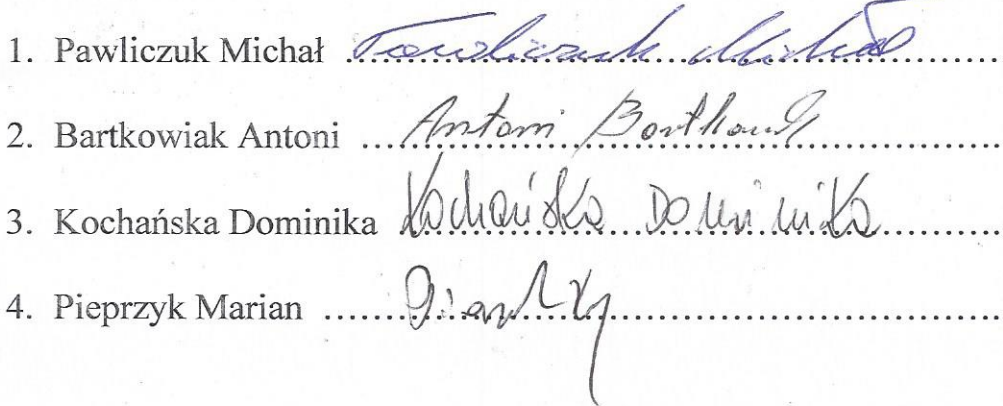 1. Pawliczuk Michał Pawliczuk Michał
2. Bartkowiak Antoni Antoni Bartkowiak
3. Kochańska Dominika Kochańska Dominika
4. Pieprzyk Marian